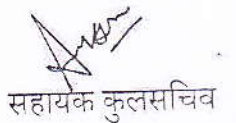 सहायक कुलसचिव